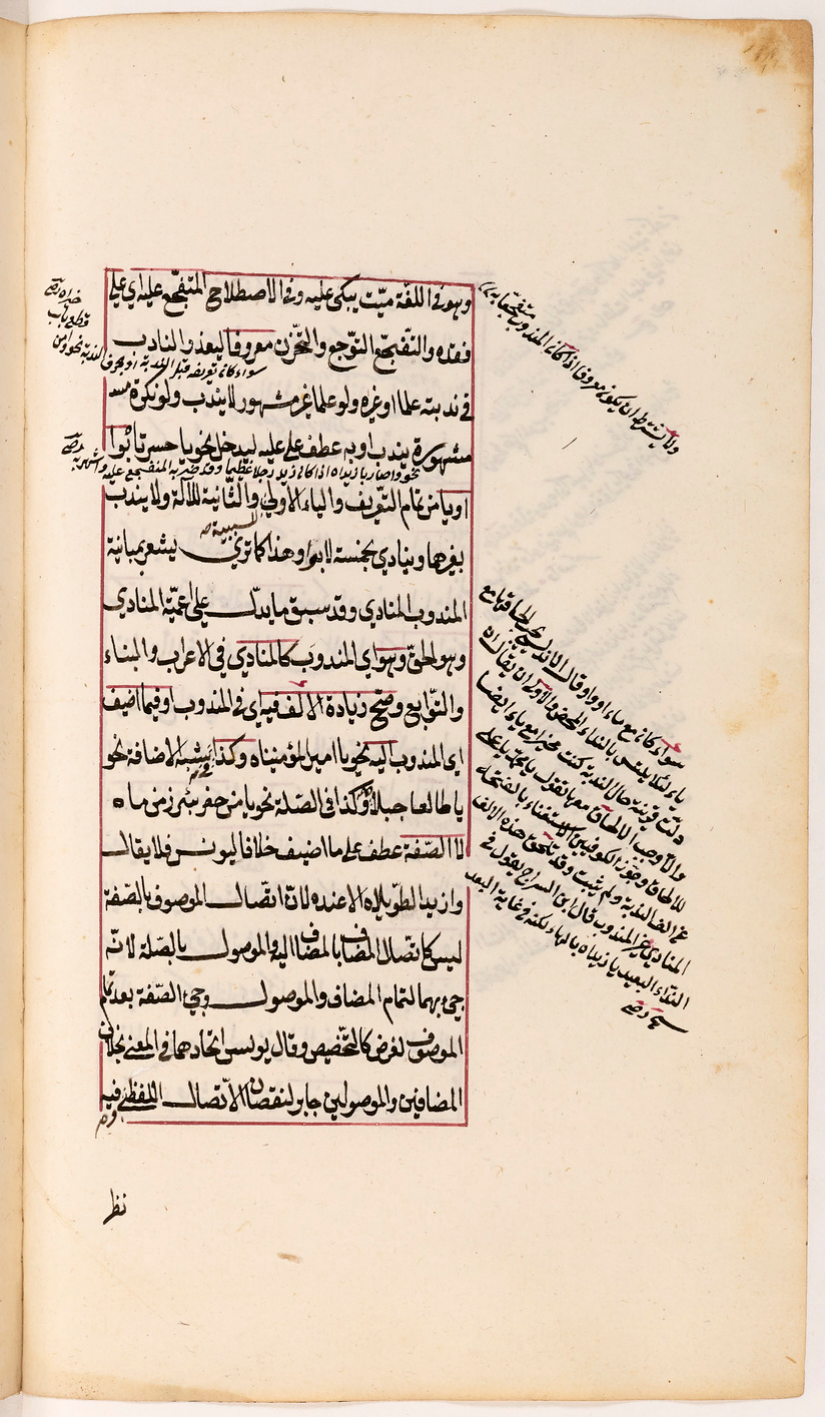 وهو في اللغة ميّت يبكى عليه وفي الاصطلاح المتفجّع عليه اي على
فقده والتفجّع التوجّع والتحّزن معروفا ليعذر النادب
سواء كان تعريفه قبل الندبة او بحرف الندبة نحو وامن
في ندبته علما او غيره ولو علما غير مشهور لا يندب ولو نكرة
مشهورة يندب او به عطف على عليه ليدخل نحو يا حسرتا بوا
نحو واصار يا زيداه اذا كان زيد رجلا عظيما
او يا من تمام التعريف والباء الاولى والثانية للآلة ولا يندب
بغيرها وينادي بخمسة لا بوا وهذا كما ترى يشعر بمباينة
للسببية
المندوب المنادى وقد سبق ما يدل على اعميّة المنادى
وهو الحق وهو اي المندوب كالمنادى في الاعراب والبناء
والتوابع وصحّ زيادة الالف فيه اي في المندوب او فيما اضيف
اي المندوب اليه نحو يا امير المؤمنيناه وكذا يشبه الاضافة نحو
يا طالعا جبلا وكذا في الصلة نحو يا من حفر بئر زمزماه
لا الصفة عطف على ما اضيف خلافا ليونس فلا يقال
وازيد الطويلاه الا عنده لان اتصال الموصوف بالصفة
ليس كاتصال المضاف بالمضاف اليه والموصول بالصلة لانه
جيئ بهما لتمام المضاف والموصول وجيئ الصفة بعد تمام
الموصوف لغرض كالتخصيص وقال يونس اتحادهما في المعنى بخلاف
المضافين والموصولين جابر لنقصان الاتصال اللفظي فيه
نظر
ولا يشترط ان يكون معروفا اذا كان المندوب متفجعا به
سواء كان مع ياء او وا وقال الاندلسي يجب الحاقها مع
ياء لئلا يلتبس بالنداء المحض والاولى ان يقال ان
دلت قرينة حال الندبة كنت مخيرا مع ياء ايضا
والا وجب الالحاق معها تقول يا محمد يا علي
للالحاق وجوّز الكوفيين الاستغناء بالفتحة
عن الف الندبة ولم يثبت وقد تلحق هذه الالف
المنادى غير المندوب قال ابن السراج يقول في
النداء البعيد يا زيداه بالهاء لكنه في غاية البعد